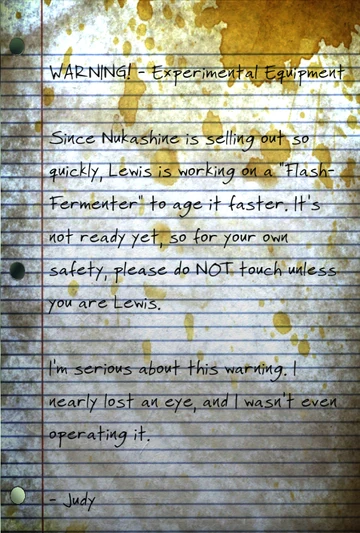 WARNING! - Experimental Equipment
Since Nukashine is selling out so
quickly, Lewis is working on a "Flash-
Fermenter" to age it faster. It's
not ready yet, so for your own
safety, please do NOT touch unless
you are Lewis.
I'm serious about this warning. I
nearly lost an eye, and I wasn't even
operating it.
- Judy